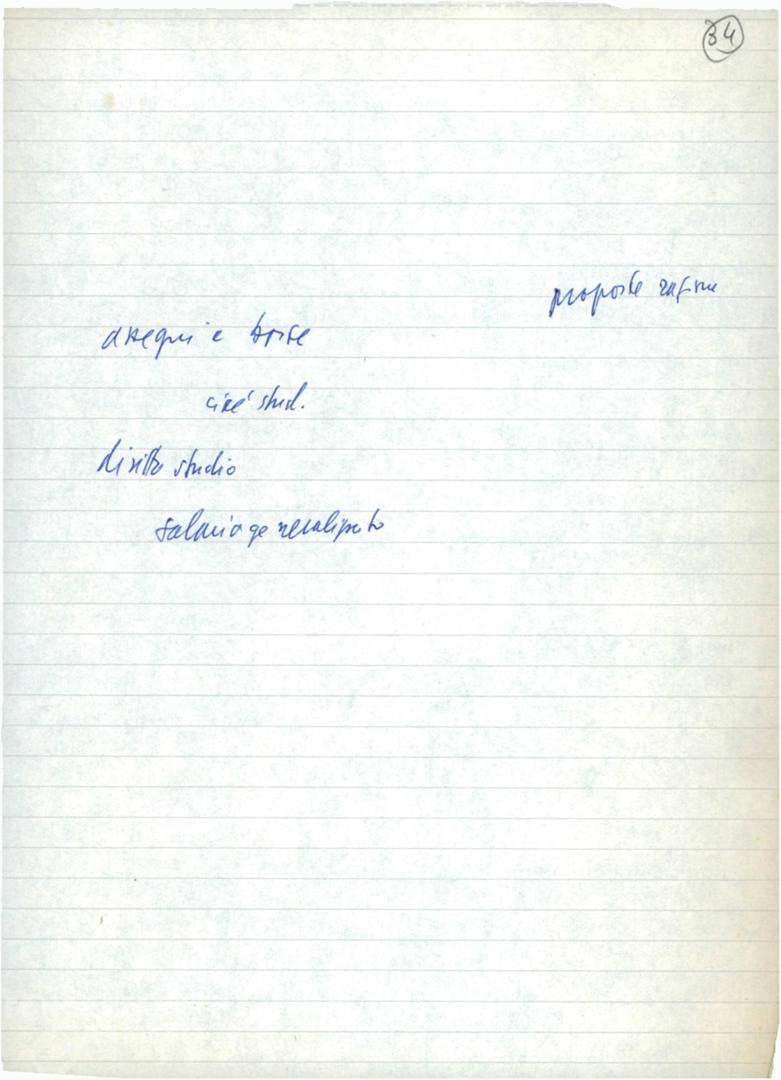 34
proposte
assegni e borse
cioè stud.
diritto studio
salario generalizzato